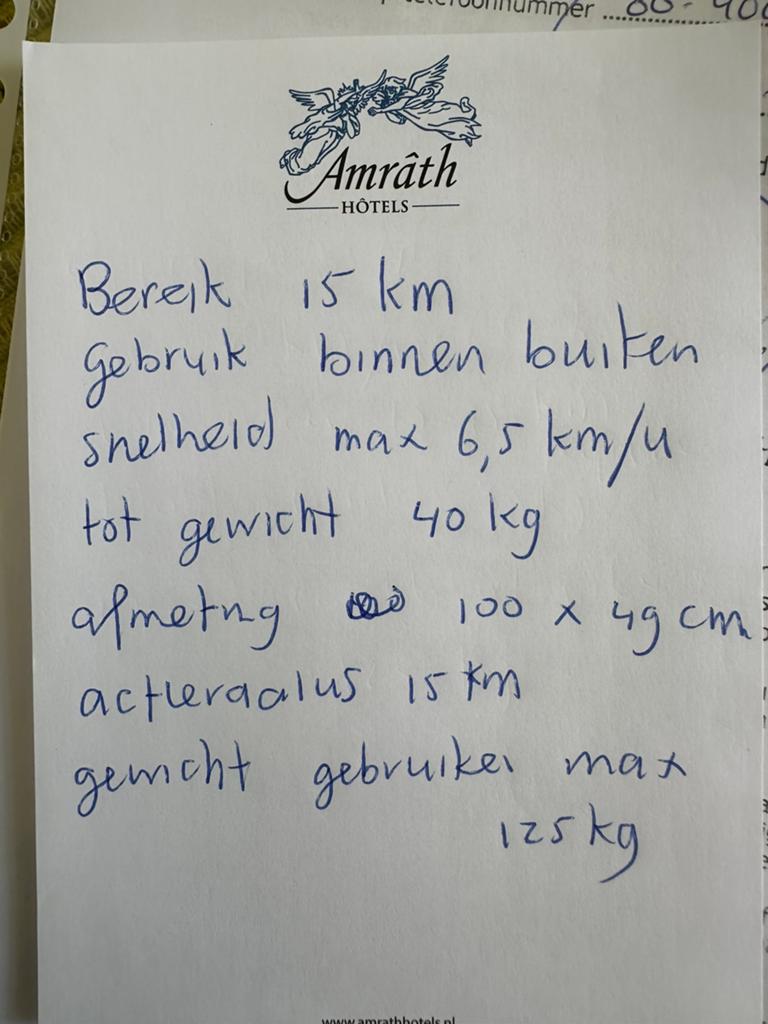 telefoonnummer
Amrâth
HÔTELS
Bereik 15 km
Gebruik binnen buiten
snelheid max 6,5 km/u
tot gewicht 40 kg
afmeting 100 x 49 cm
15 km
gewicht gebruiker max
125 kg
www.amrathhotels.nl